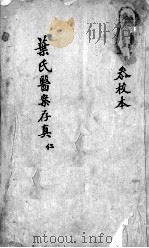 校本
葉氏醫案存真 仁